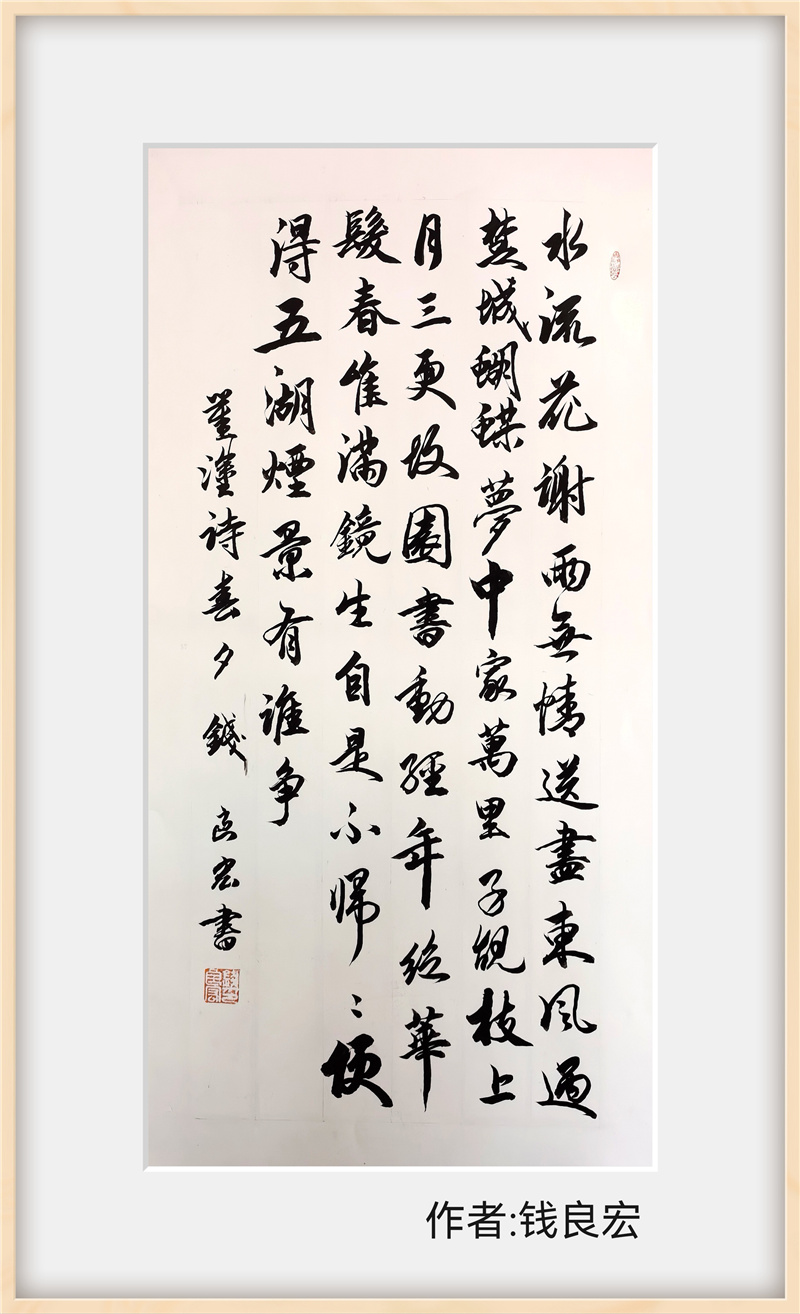 水流花謝兩無情送盡東風過
楚城蝴蝶夢中家萬里子規枝上
月三更故園書動經年絕華
髮春催滿鏡生自是不歸〻便
得五湖煙景有誰爭
崔塗詩春夕 錢良宏書
作者:钱良宏